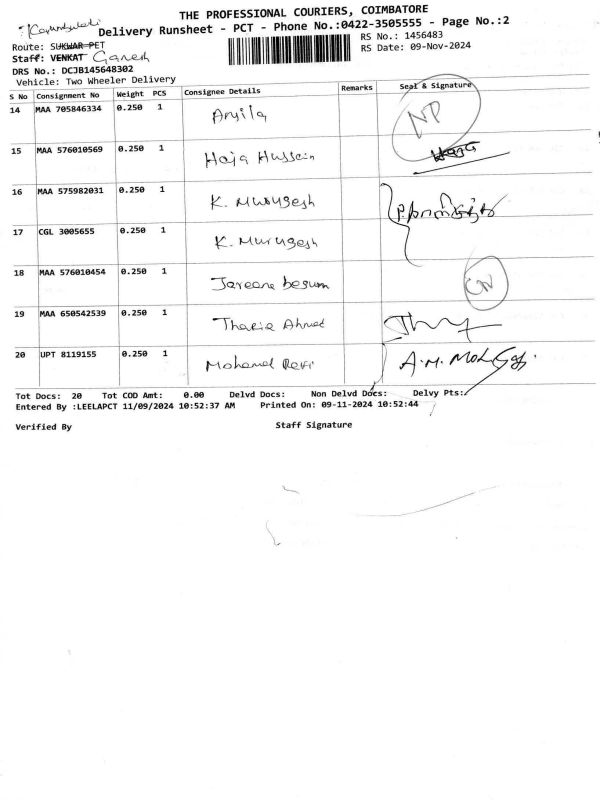 THE PROFESSIONAL COURIERS, COIMBATORE
Delivery Runsheet - PCT - Phone No.:0422-3505555 - Page No.:2
Route: SUKWAR PET
RS No.: 1456483
Staff: VENKAT Ganesh
RS Date: 09-Nov-2024
DRS No.: DCJB145648302
Vehicle: Two Wheeler Delivery
S No Consignment No Weight PCS Consignee Details Remarks Seal & Signature
14 MAA 705846334 0.250 1
15 MAA 576010569 0.250 1 Haja Hussein
16 MAA 575982031 0.250 1 K. Murugesh
17 CGL 3005655 0.250 1 K. Murugesh
18 MAA 576010454 0.250 1 begum
19 MAA 650542539 0.250 1 Ahmed
20 UPT 8119155 0.250 1 Mohamed
Tot Docs: 20 Tot COD Amt: 0.00 Delvd Docs: Non Delvd Docs: Delvy Pts:
Entered By :LEELAPCT 11/09/2024 10:52:37 AM Printed On: 09-11-2024 10:52:44
Verified By Staff Signature